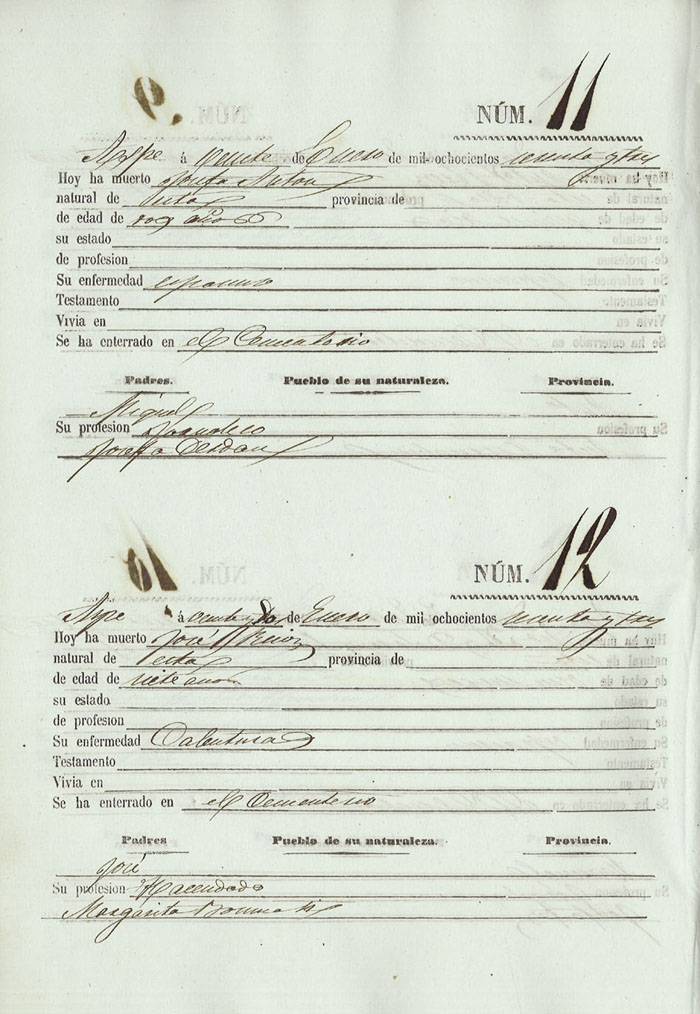 NÚM. 11
Aspe á veinte de Enero de mil ochocientos sesenta y tres
Hoy ha muerto Antón
natural de esta provincia de
de edad de dos años
su estado
de profesion
Su enfermedad espasmo
Testamento
Vivia en
Se ha enterrado en el Cementerio
Padres. Pueblo de su naturaleza. Provincia.
Miguel
Su profesion Jornalero
Josefa Cerdán
NÚM. 12
Aspe á veinte y dos de Enero de mil ochocientos sesenta y tres
Hoy ha muerto José
natural de esta provincia de
de edad de siete años
su estado
de profesion
Su enfermedad Calentura
Testamento
Vivia en
Se ha enterrado en el Cementerio
Padres Pueblo de su naturaleza. Provincia.
José
Su profesion Hacendado
Margarita